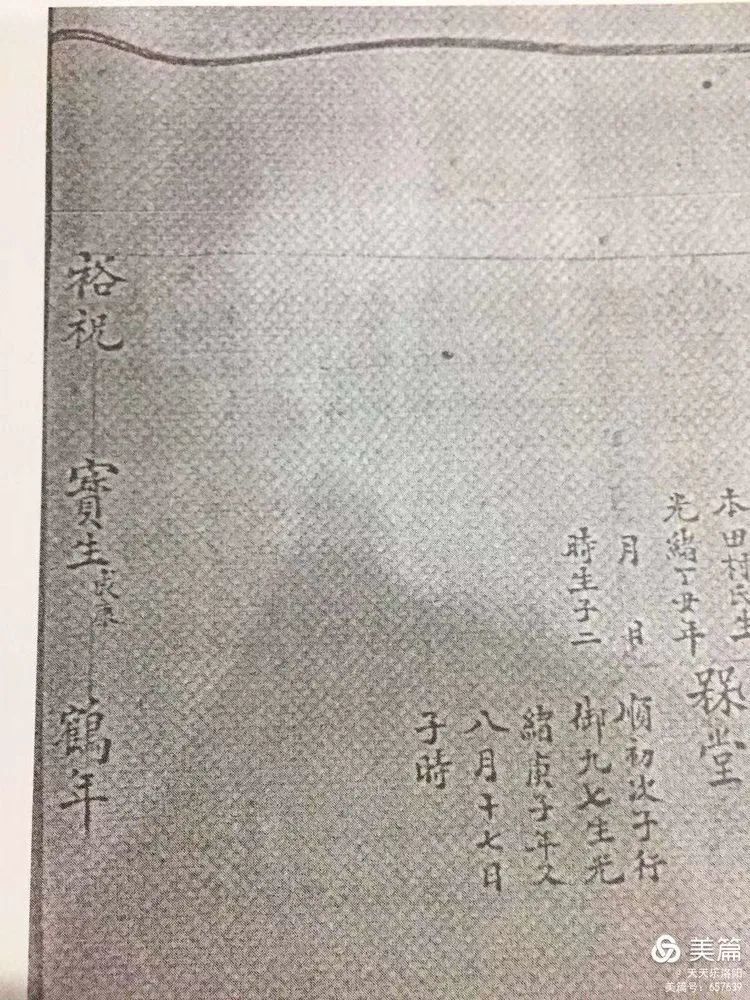 本田村氏生
光緒丁丑年
月　日
時生子二
槑堂
順初次子行
御九七生光
緒庚子年又
八月十七日
子時
裕祝
寶生
鶴年
美篇
天天乐洛阳
美篇号：657639